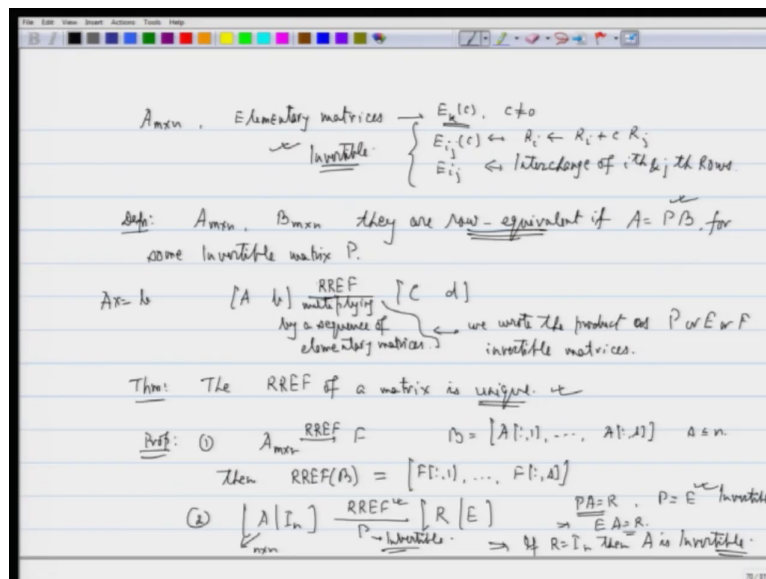 File Edit View Insert Actions Tools Help
A m×n . Elementary matrices → E_k(c), c≠0
Invertible. E_ij(c) ↔ R_i ← R_i + c R_j
E_ij ↔ Interchange of ith & jth Rows.
Defn: A m×n, B m×n they are row-equivalent if A = PB, for
some Invertible matrix P.
Ax=b [A b] RREF [C d]
multiplying
by a sequence of ← we wrote the product as P or E or F
elementary matrices. invertible matrices.
Thm: The RREF of a matrix is unique.
Prop: ① A m×n RREF F B = [A[:,1], ..., A[:,s]] s ≤ n.
then RREF(B) = [F[:,1], ..., F[:,s]]
② [A | I_n] RREF [R | E] PA=R, P=E Invertible
n×n P → Invertible. ⇒ EA=R.
⇒ If R=I_n then A is Invertible.